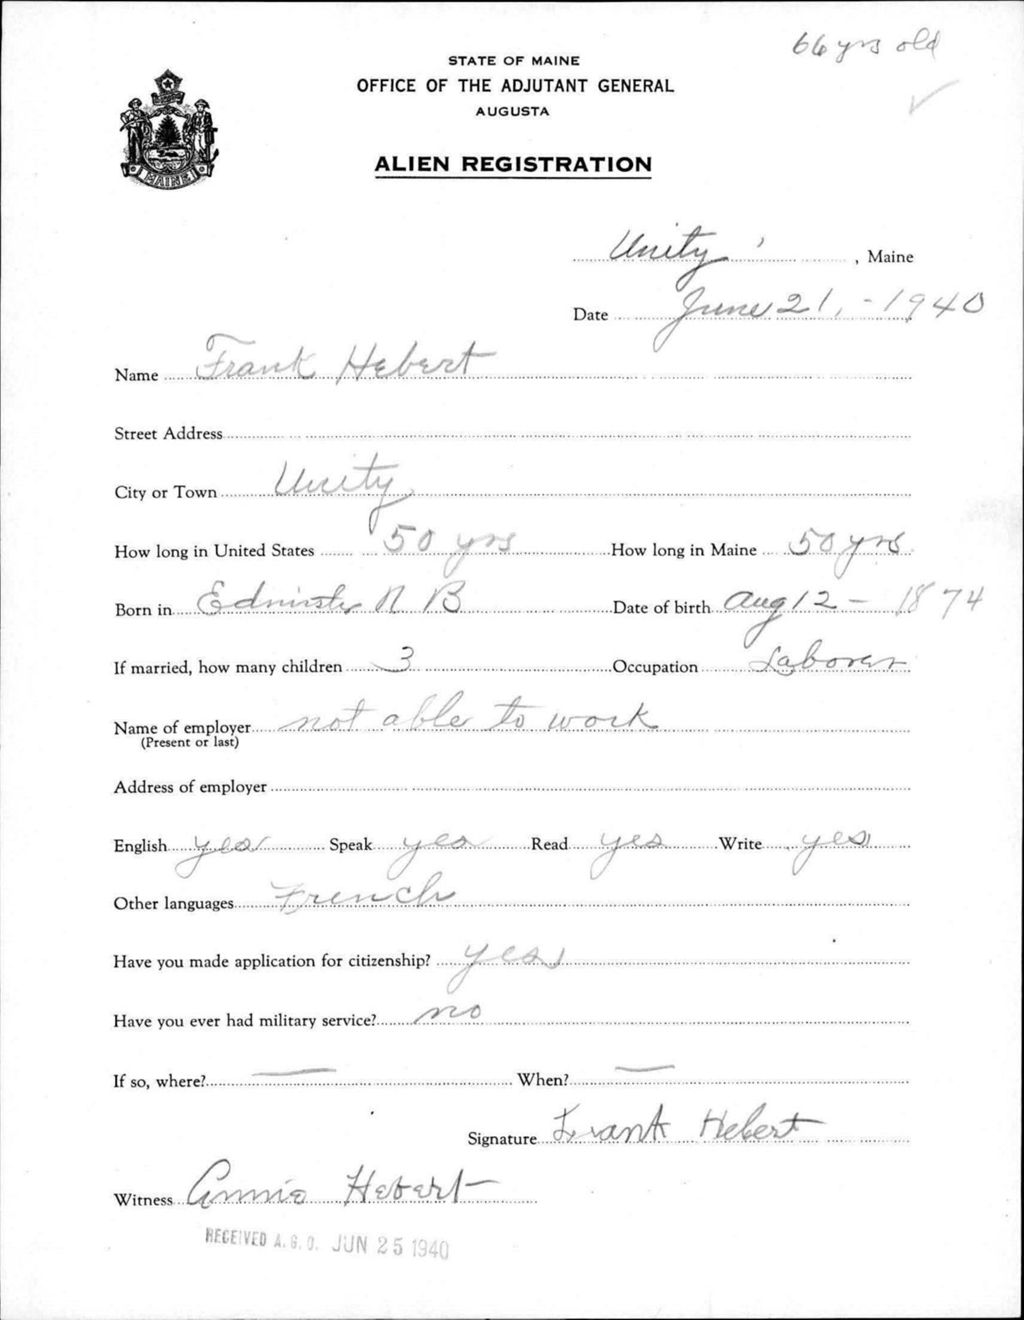 66 yrs old
STATE OF MAINE
OFFICE OF THE ADJUTANT GENERAL
AUGUSTA
MAINE
ALIEN REGISTRATION
Unity, Maine
Date June 21, - 1940
Name Frank Hebert
Street Address
City or Town Unity
How long in United States 50 yrs How long in Maine 50 yrs
Born in Edminster N B Date of birth Aug 12 - 1874
If married, how many children 3 Occupation Laborer
Name of employer not able to work
(Present or last)
Address of employer
English yes Speak yes Read yes Write yes
Other languages French
Have you made application for citizenship? yes
Have you ever had military service? no
If so, where? — When? —
Signature Frank Hebert
Witness Annie Hebert
RECEIVED A. G. O. JUN 25 1940